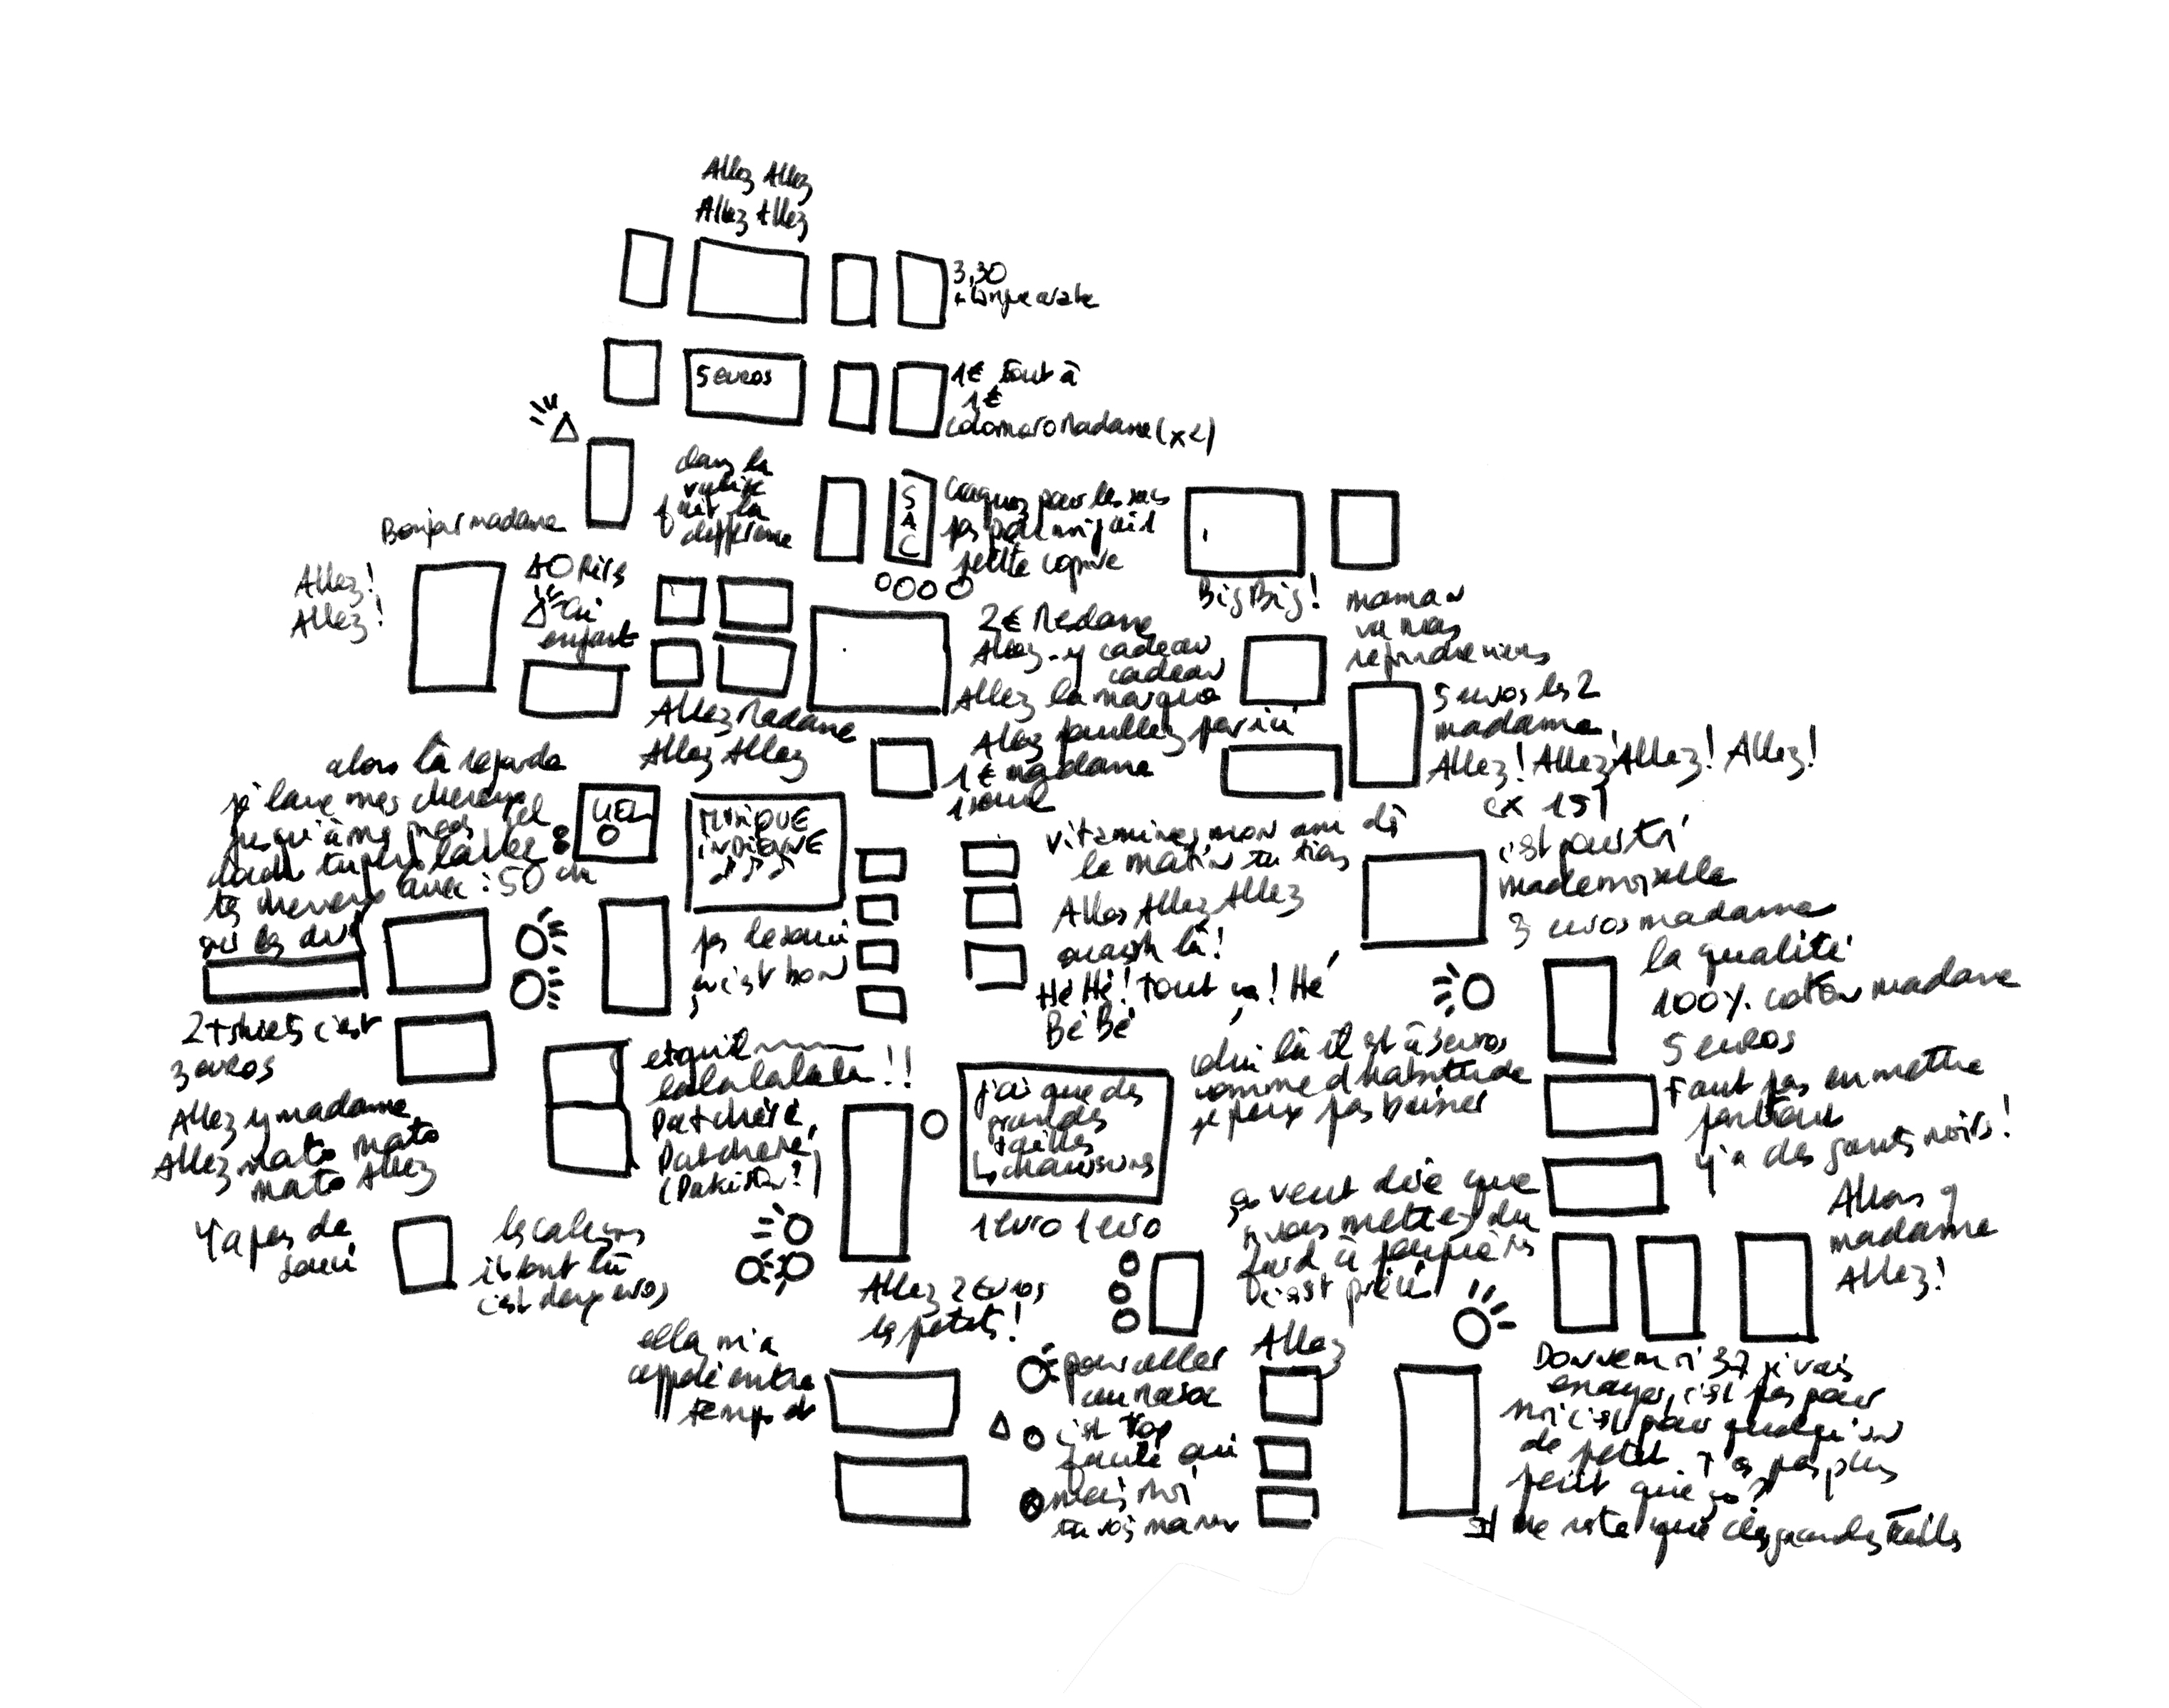 Allez Allez
Allez Allez
3,30
5 euros
1€ tout à
1€
madame (x2)
dans la
valise
fait la
SAC
Craquez pour les sacs
pas pour moi j'ai 1
petite copine
Bonjour madame
Allez!
Allez!
10 
enfant
Big Big!
maman
va nous
2€ Madame
Allez-y cadeau
cadeau
Allez la marque
Allez fouillez par ici
1€ madame
1 seul
5 euros les 2
madame
Allez! Allez Allez! Allez!
(x 15)
Allez Madame
Allez Allez
alors là regarde
je lave mes cheveux
jusqu'à mes pieds gel
douche tu peux laver
tes cheveux avec : 50 ch
GEL
MUSIQUE
INDIENNE
vitamines mon ami dis
le matin tu
Allez Allez Allez
là!
Hé Hé! tout ça! Hé
Bé Bé
c'est pour toi
mademoiselle
3 euros madame
la qualité
100% coton madame
5 euros
pas de souci
c'est bon
2 t shirts c'est
3 euros
Allez y madame
Allez mato mato
mato Allez
lalalalala!!
Patchéré,
Patchéré,
(Pakistan?)
j'ai que des
grandes
tailles
↳ chaussons
1 euro 1 euro
celui là il est à 5 euros
comme d'habitude
je peux pas baisser
Faut pas en mettre
partout
y'a des gants noirs!
ça veut dire que
vous mettez du
fard à paupières
c'est précis
Allons y
madame
Allez!
Y a pas de
souci
les caleçons
ils sont là
c'est deux euros
Allez 2 euros
les petits!
elle m'a
appelé entre
temps
pour aller
au Maroc
c'est trop
facile oui
mais moi
tu vois
Allez
Donne moi 37 je vais
essayer, c'est pas pour
moi c'est pour quelqu'un
de petit t'as pas plus
petit que ça?
Il me reste que des grandes tailles